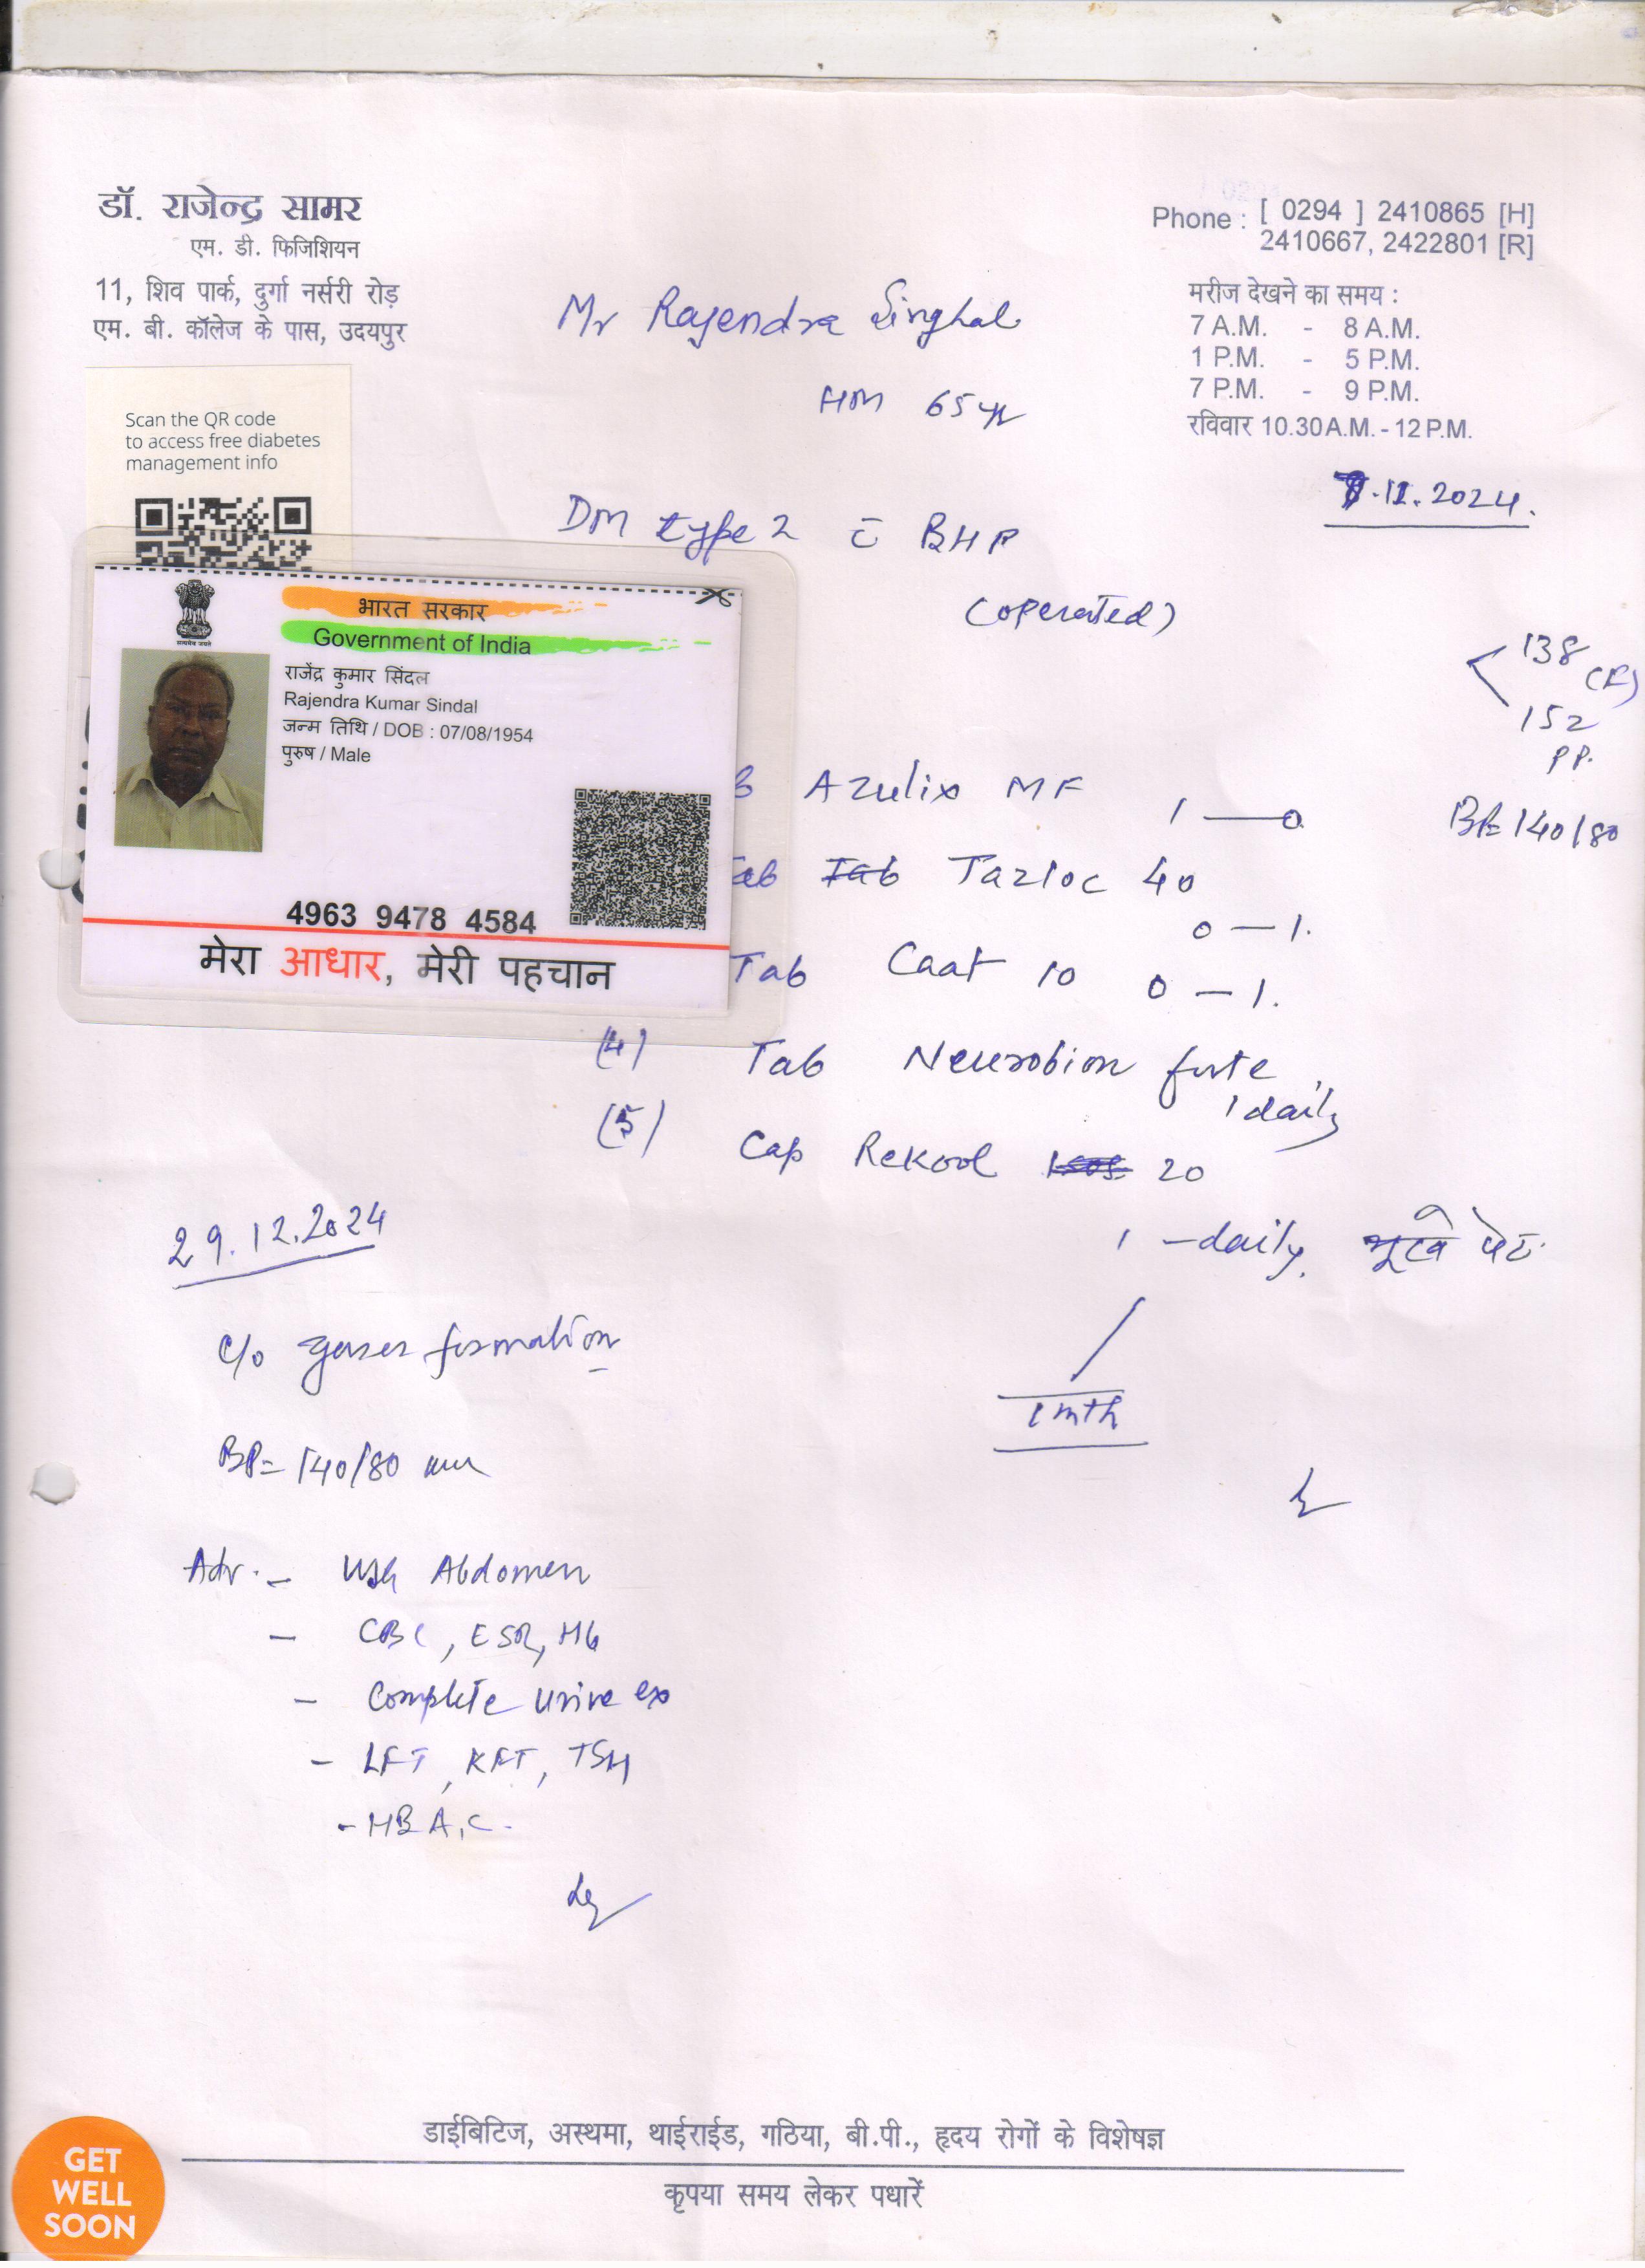 डॉ. राजेन्द्र सामर
एम. डी. फिजिशियन
11, शिव पार्क, दुर्गा नर्सरी रोड़
एम. बी. कॉलेज के पास, उदयपुर
Phone : [ 0294 ] 2410865 [H]
2410667, 2422801 [R]
मरीज देखने का समय :
7 A.M. - 8 A.M.
1 P.M. - 5 P.M.
7 P.M. - 9 P.M.
रविवार 10.30A.M. - 12 P.M.
Mr Rajendra Singhal
65 yr
.11.2024.
Scan the QR code
to access free diabetes
management info
DM type 2 c̄ BHP
(operated)
138 (F)
152
PP.
भारत सरकार
Government of India
राजेंद्र कुमार सिंदल
Rajendra Kumar Sindal
जन्म तिथि / DOB : 07/08/1954
पुरुष / Male
4963 9478 4584
मेरा आधार, मेरी पहचान
Azulix MF 1 — 0
BP= 140/80
Tazloc 40
0 — 1.
Tab Caat 10 0 — 1.
(4) Tab Neurobion forte
1 daily
(5) Cap Rekool 20
1 - daily. भूखे पेट
1 mth
29.12.2024
c/o gases formation
BP= 140/80 mm
Adv. - USG Abdomen
- CBC, ESR, Hb
- Complete Urine ex
- LFT, KFT, TSH
- HBA1C.
डाईबिटिज, अस्थमा, थाईराईड, गठिया, बी.पी., हृदय रोगों के विशेषज्ञ
कृपया समय लेकर पधारें
GET
WELL
SOON